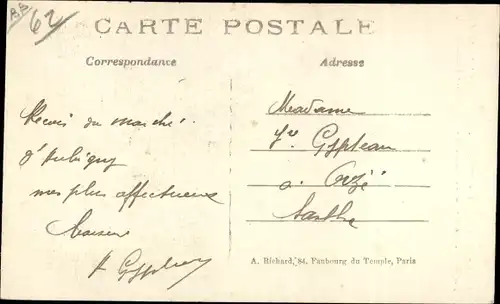 62
CARTE POSTALE
Correspondance
Adresse
du marché
d'Aubigny
mes plus affectueux
baisers
Madame
Vve Gypteau
à
Sarthe
A. Richard, 84. Faubourg du Temple, Paris